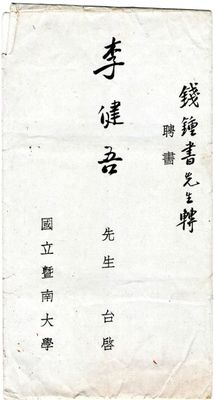 錢鍾書先生轉
聘書
李健吾 先生 台啓
國立暨南大學